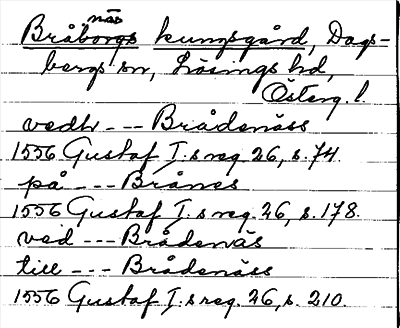 näs
Bråborgs kungsgård, Dags-
bergs sn, Lösings hd,
Österg. l.
vedh --- Brådenäss
1556 Gustaf I.s reg. 26, s. 74.
på --- Brånes
1556 Gustaf I.s reg. 26, s. 178.
ved --- Brådenäs
till --- Brådenäss
1556 Gustaf I.s reg. 26, s. 210.